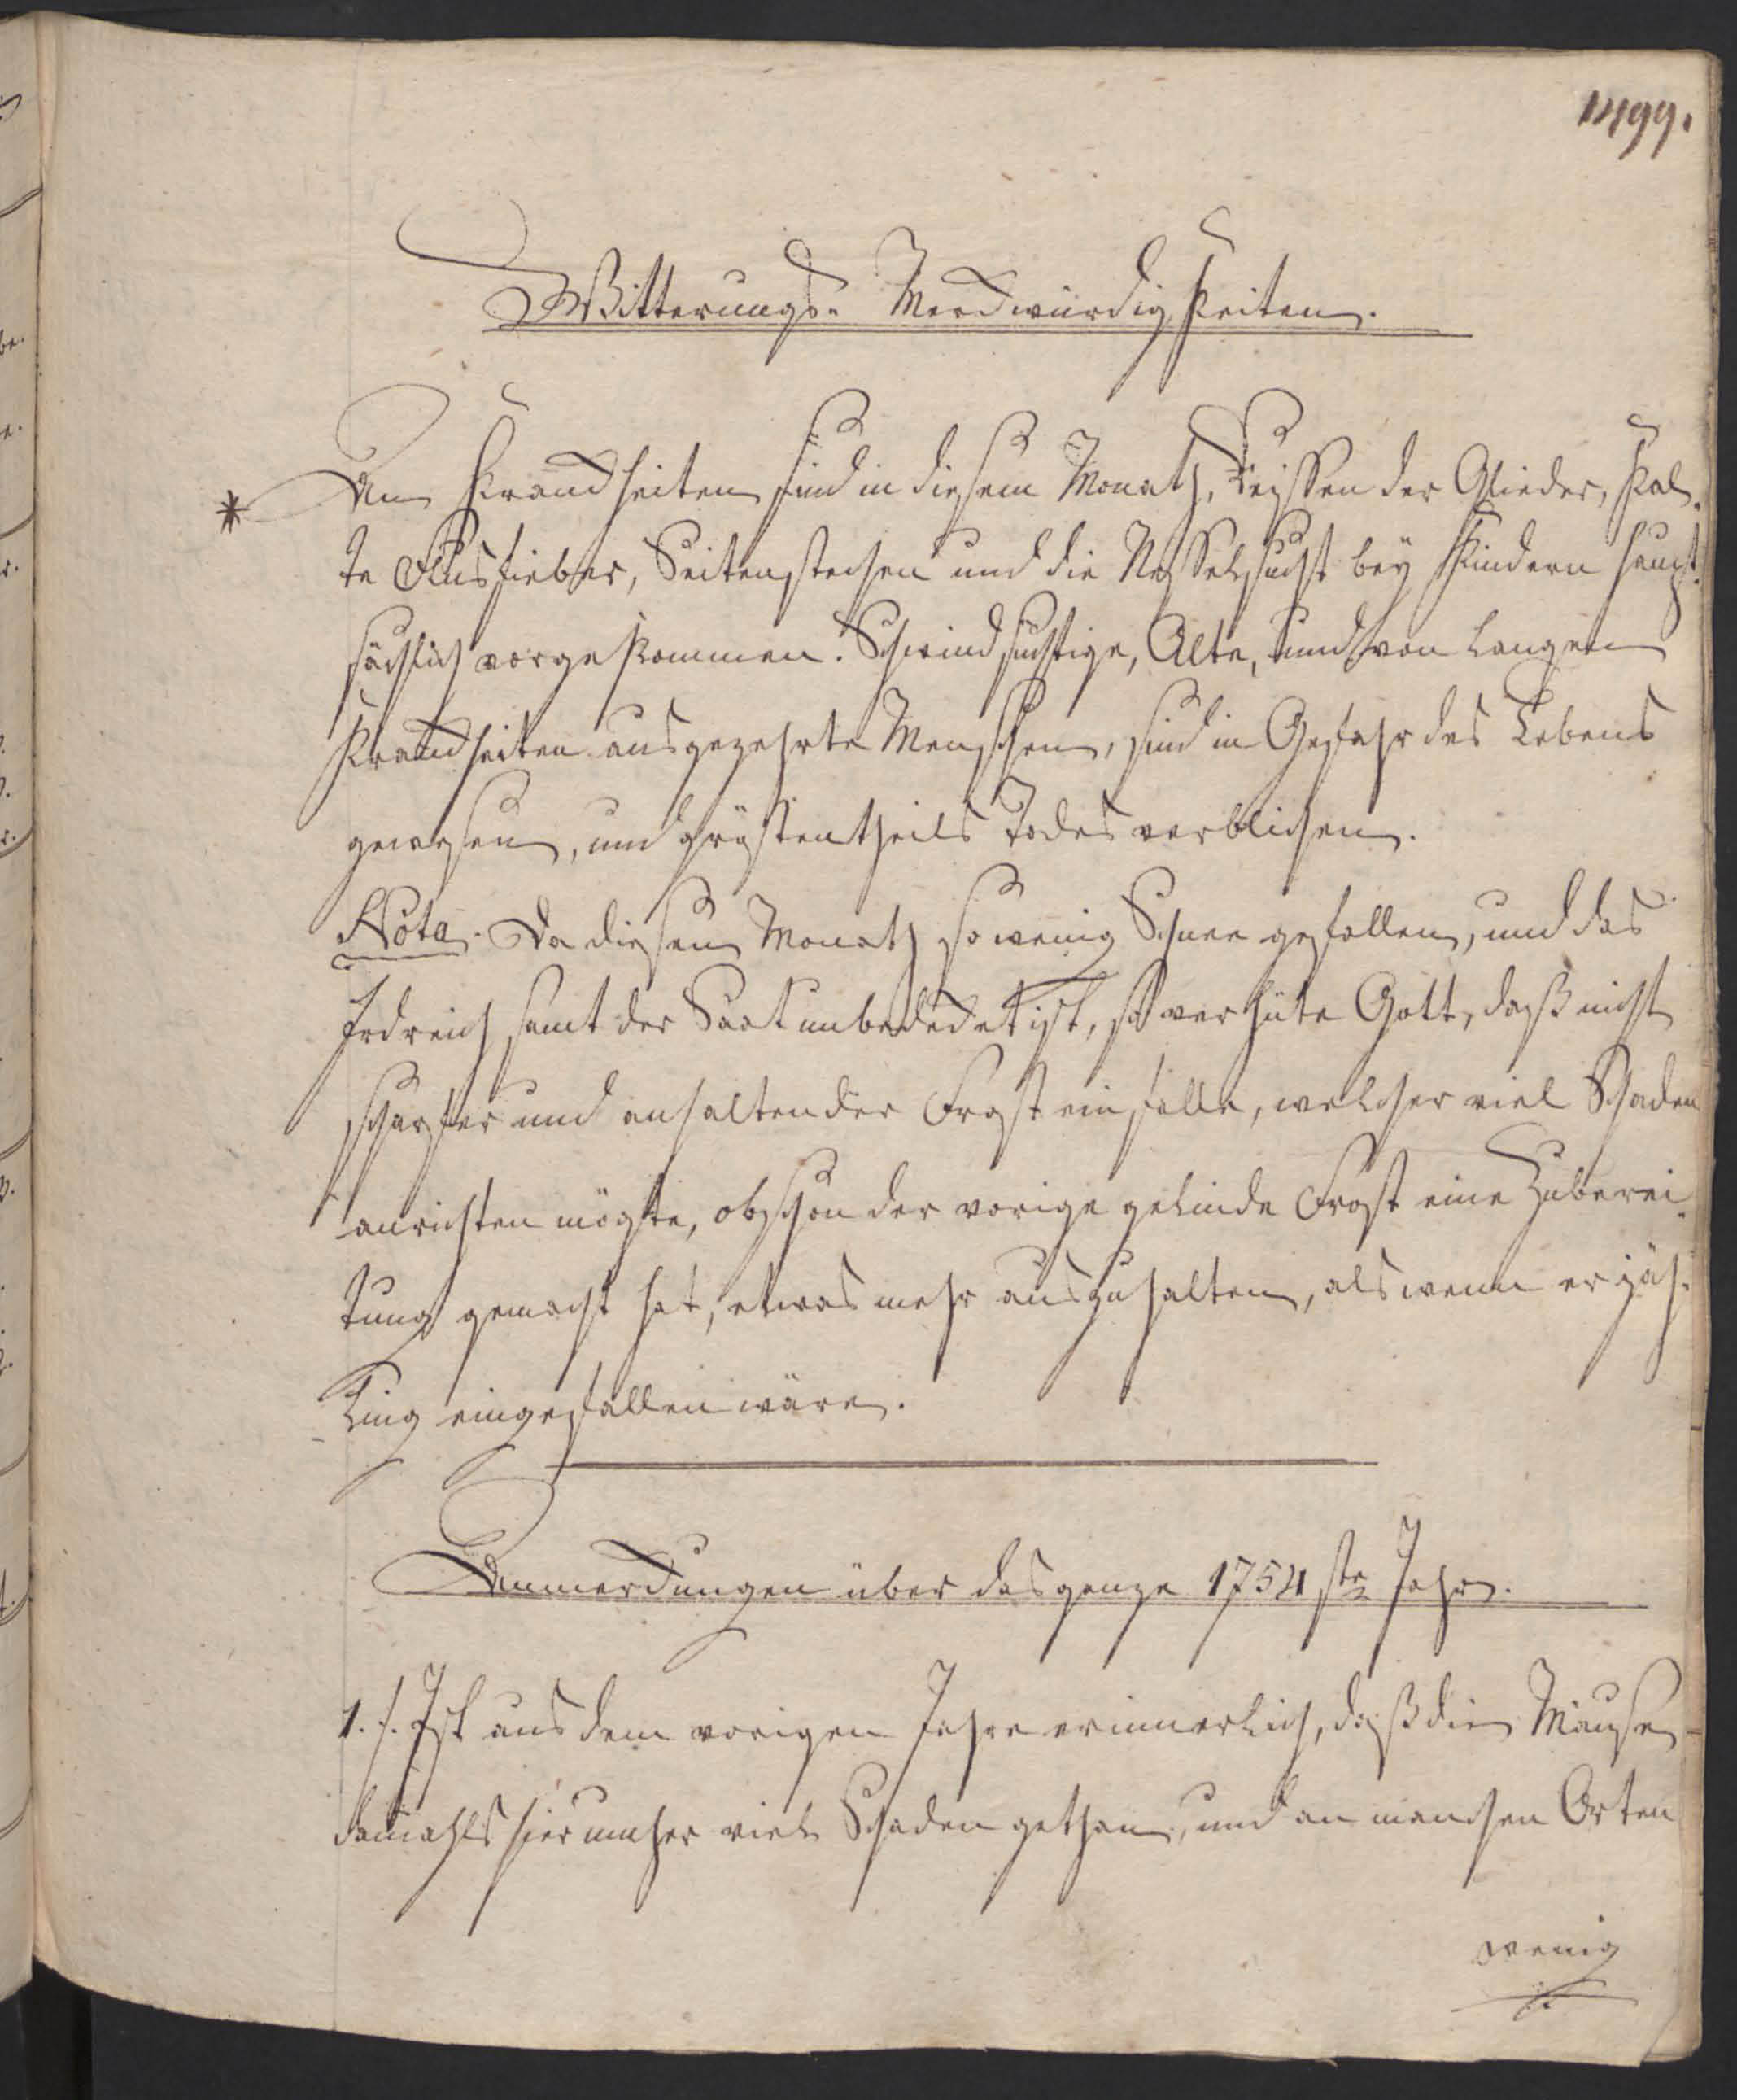 1499.
Witterungs- Merckwürdigkeiten.
* An Kranckheiten sind in diesem Monath, Reissen der Glieder, Kal-
te Flusfieber, Seitenstechen und die Nesselsucht bey Kindern haupt-
sächlich vorgekommen. Schwindsüchtige, Alte, und von langen
Kranckheiten ausgezehrte Menschen, sind in Gefahr des Lebens
gewesen, und gröstentheils Todes verblichen.
Nota. Da diesen Monath so wenig Schnee gefallen, und das
Erdreich samt der Saat unbedecket ist, so verhüte Gott, daß nicht
scharfer und anhaltender Frost einfalle, welcher viel Schaden
anrichten mögte, obschon der vorige gelinde Frost eine Zuberei-
tung gemacht hat, etwas mehr auszuhalten, als wenn er jäh-
ling eingefallen wäre.
Anmerckungen über das ganze 1754ste Jahr.
1. /. Ist aus dem vorigen Jahre erinnerlich, daß die Mäuse
damahls hier umher viel Schaden gethan, und an manchen Orten
wenig